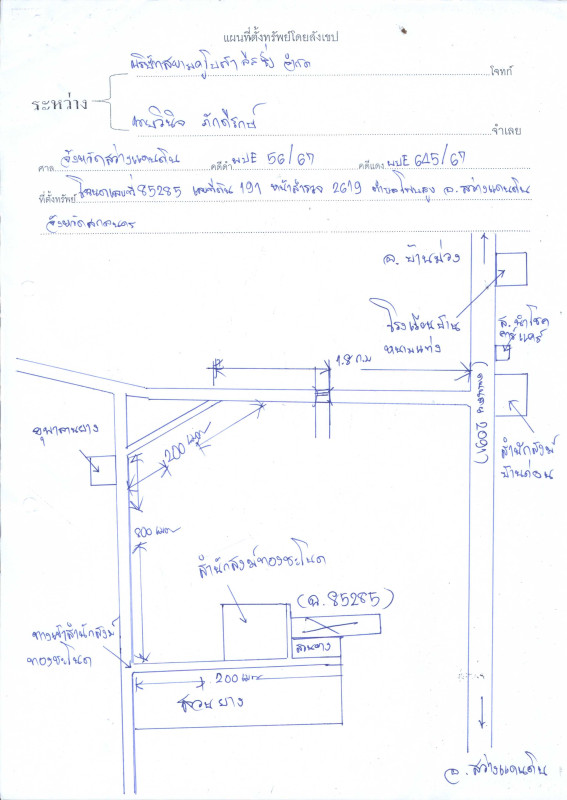 แผนที่ตั้งทรัพย์โดยสังเขป
บริษัทสยามคูโบต้า ลีสซิ่ง จำกัด โจทก์
ระหว่าง
นายวินิจ ภักดีรักษ์ จำเลย
ศาล จังหวัดสว่างแดนดิน คดีดำ ผบE 56/67 คดีแดง ผบE 645/67
ที่ตั้งทรัพย์ โฉนดเลขที่ 85285 เลขที่ดิน 191 หน้าสำรวจ 2619 ตำบลโพนสูง อ.สว่างแดนดิน
จังหวัดสกลนคร
อ. บ้านม่วง
โรงเรียนบ้าน
หนามแท่ง
ส. นำโชค
คาร์แคร์
1.8 ก.ม
(ถนนเลข 2091)
200 เมตร
สำนักสงฆ์
บ้านด่อน
800 เมตร
สำนักสงฆ์ทองชะโนด
(ฉ. 85285)
สวนยาง
ทางเข้าสำนักสงฆ์
ทองชะโนด
200 เมตร
สวนยาง
อ. สว่างแดนดิน